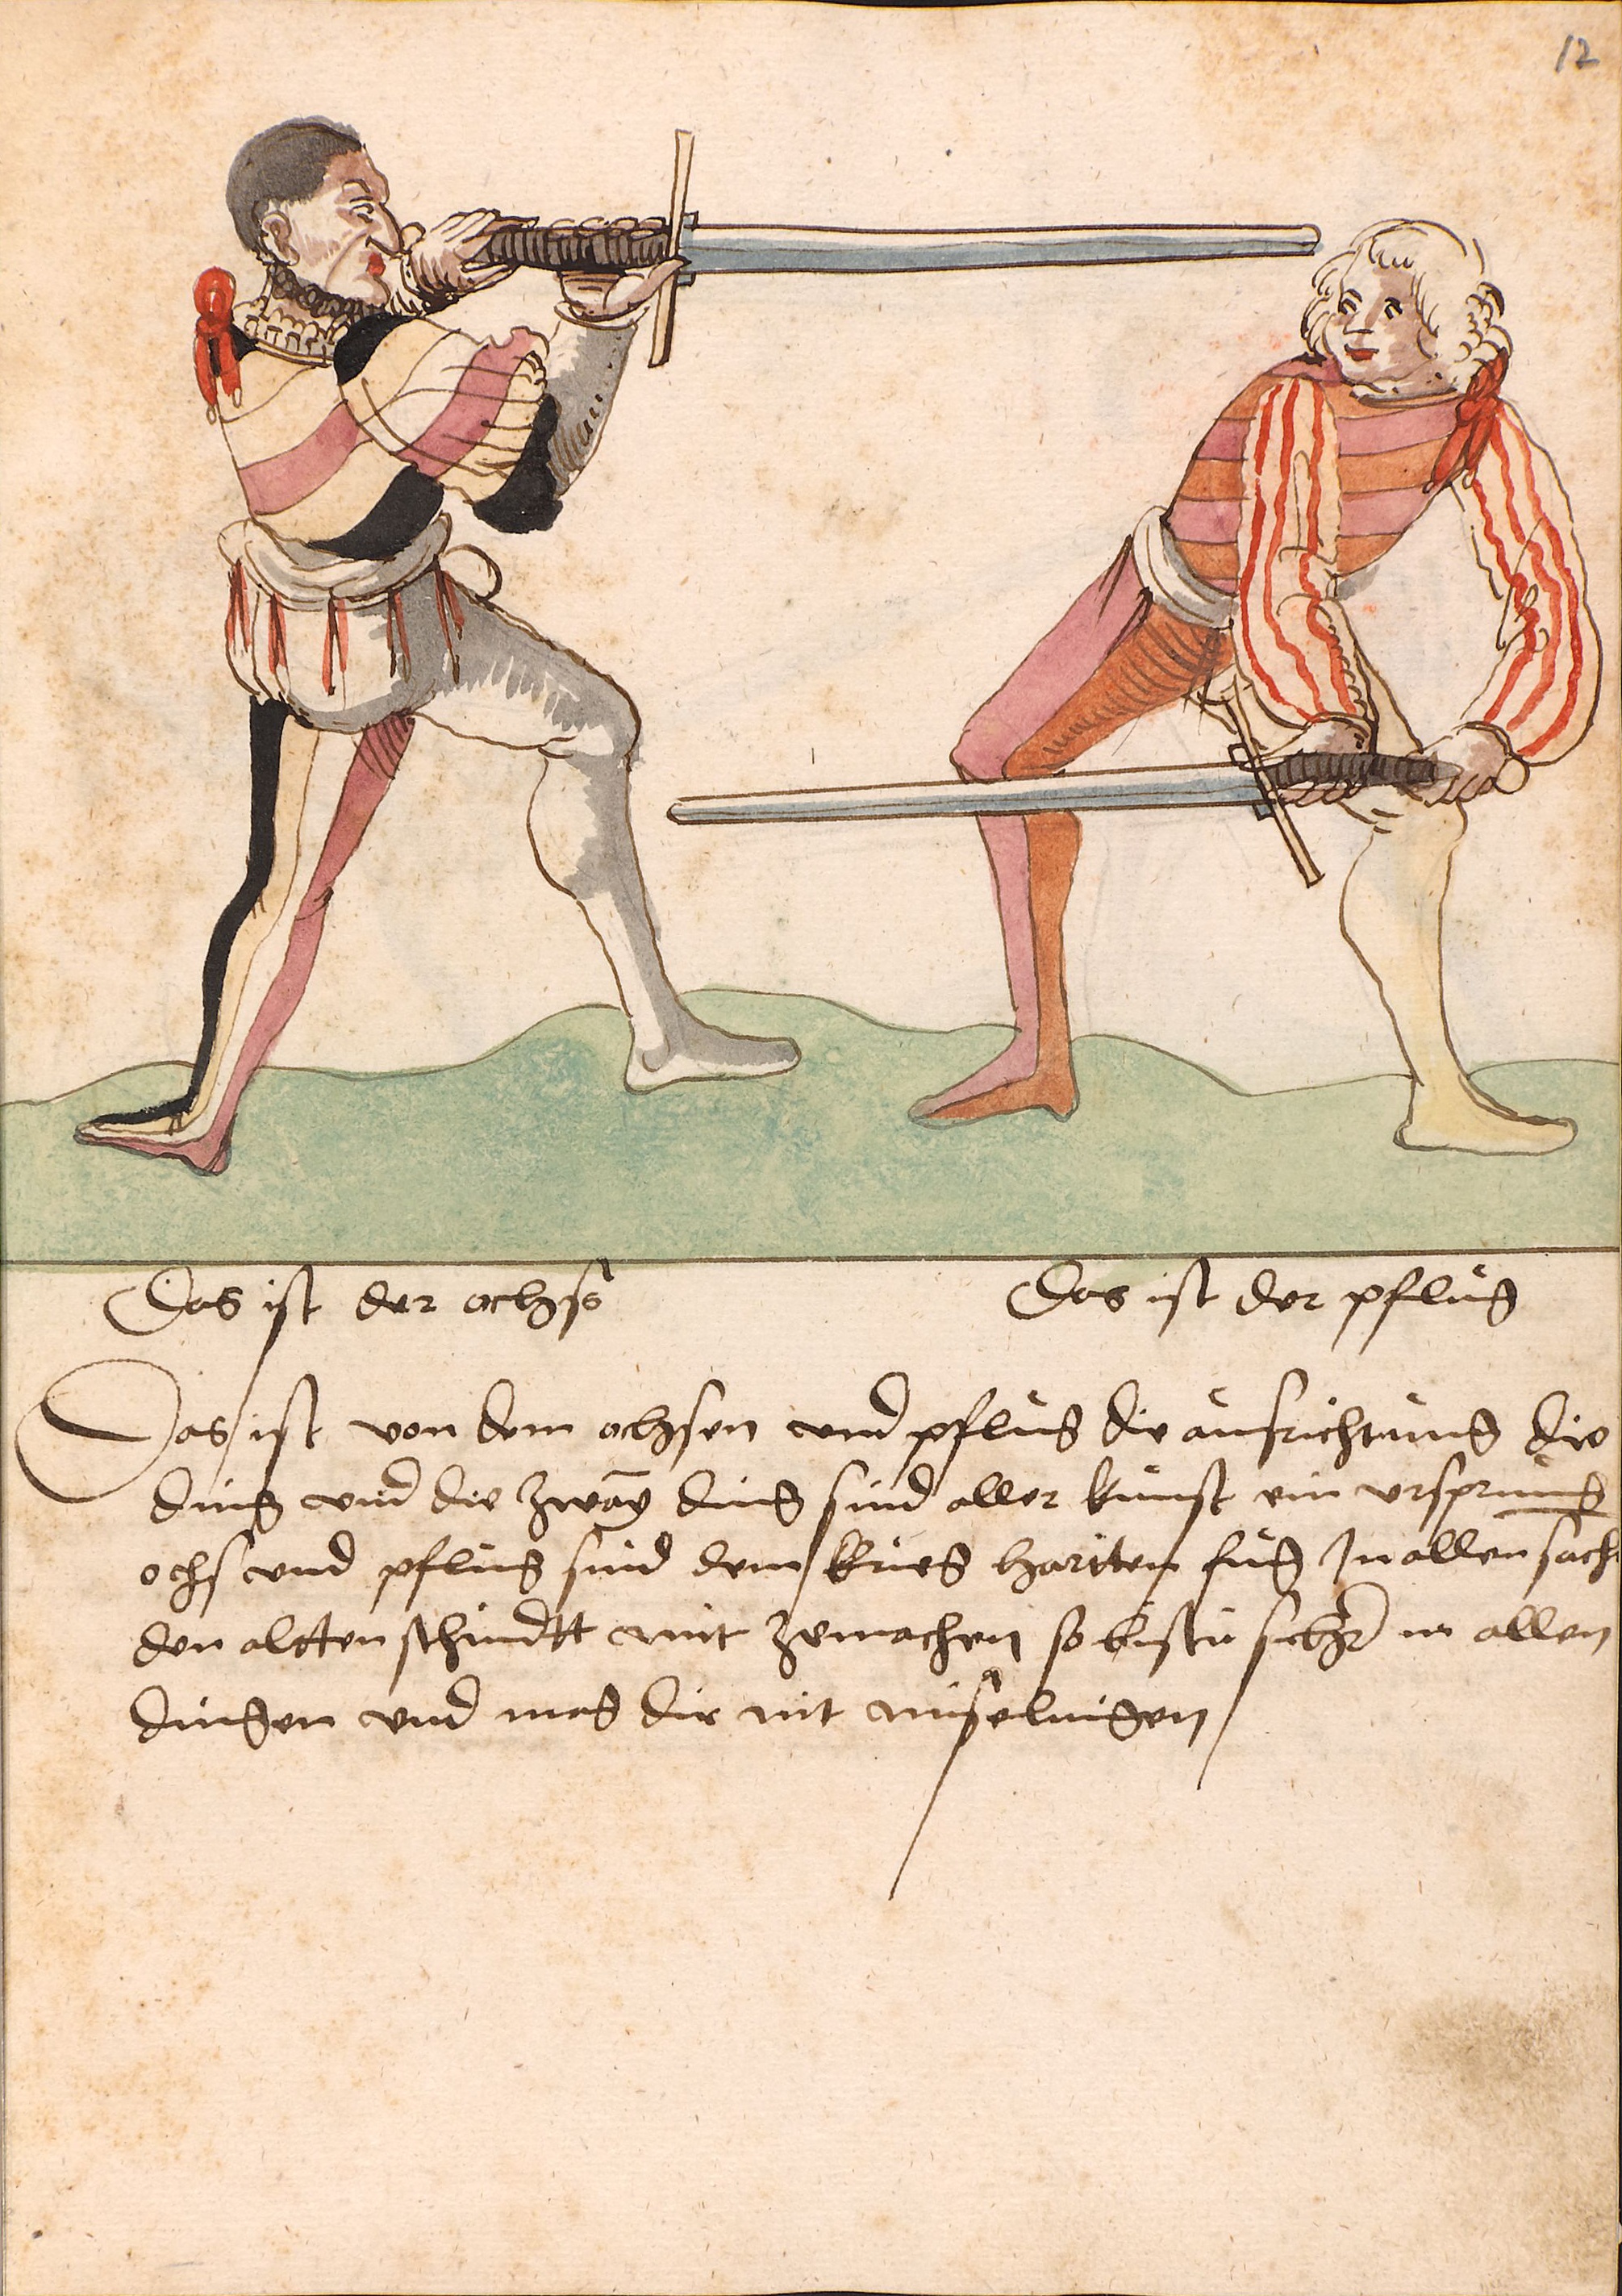 12
Das ist der ochss
Das ist der pflug
Das ist von dem ochsen vnd pflug die ausrichtung die
ding vnd die zway ding sind aller kunst ein vrsprung
ochs vnd pflug sind dem krieg hartten fug In allen sach
den altten schnidtt mit zemachen so bistu sicher in allen
dingen vnd mag dir nit misselingen